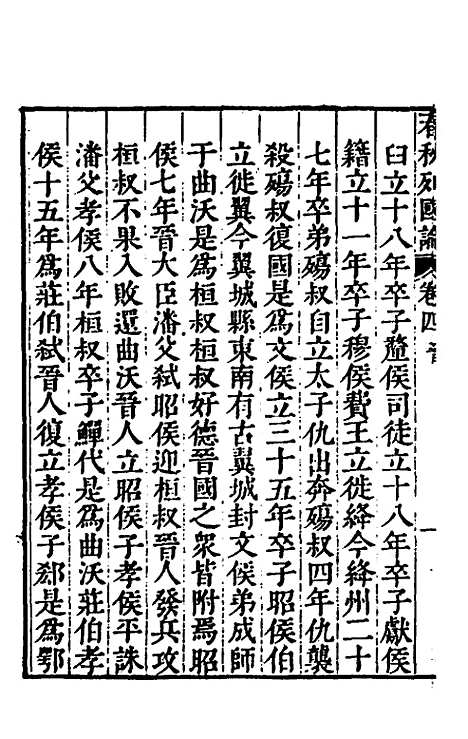 春秋列國論 卷四 晉 一
臼立十八年卒子釐侯司徒立十八年卒子獻侯
籍立十一年卒子穆侯費王立徙絳今絳州二十
七年卒弟殤叔自立太子仇出奔殤叔四年仇襲
殺殤叔復國是為文侯立三十五年卒子昭侯伯
立徙翼今翼城縣東南有古翼城封文侯弟成師
于曲沃是為桓叔桓叔好德晉國之眾皆附焉昭
侯七年晉大臣潘父弒昭侯迎桓叔晉人發兵攻
桓叔不果入敗還曲沃晉人立昭侯子孝侯平誅
潘父孝侯八年桓叔卒子鱓代是為曲沃莊伯孝
侯十五年為莊伯弒晉人復立孝侯子郄是為鄂